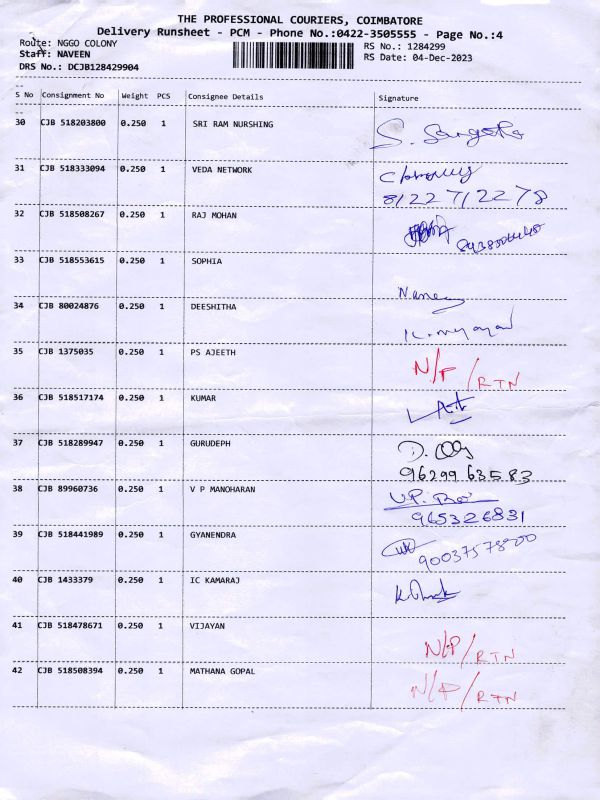 THE PROFESSIONAL COURIERS, COIMBATORE
Delivery Runsheet - PCM - Phone No.:0422-3505555 - Page No.:4
Route: NGGO COLONY
RS No.: 1284299
Staff: NAVEEN
RS Date: 04-Dec-2023
DRS No.: DCJB128429904
S No Consignment No Weight PCS Consignee Details Signature
30 CJB 518203800 0.250 1 SRI RAM NURSHING S. Sangeetha
31 CJB 518333094 0.250 1 VEDA NETWORK
8122712278
32 CJB 518508267 0.250 1 RAJ MOHAN
33 CJB 518553615 0.250 1 SOPHIA
34 CJB 80024876 0.250 1 DEESHITHA
35 CJB 1375035 0.250 1 PS AJEETH N/P /RTN
36 CJB 518517174 0.250 1 KUMAR
37 CJB 518289947 0.250 1 GURUDEPH
96299 63583
38 CJB 89960736 0.250 1 V P MANOHARAN V.P.
965326831
39 CJB 518441989 0.250 1 GYANENDRA
40 CJB 1433379 0.250 1 IC KAMARAJ
41 CJB 518478671 0.250 1 VIJAYAN N/P/RTN
42 CJB 518508394 0.250 1 MATHANA GOPAL N/P/RTN